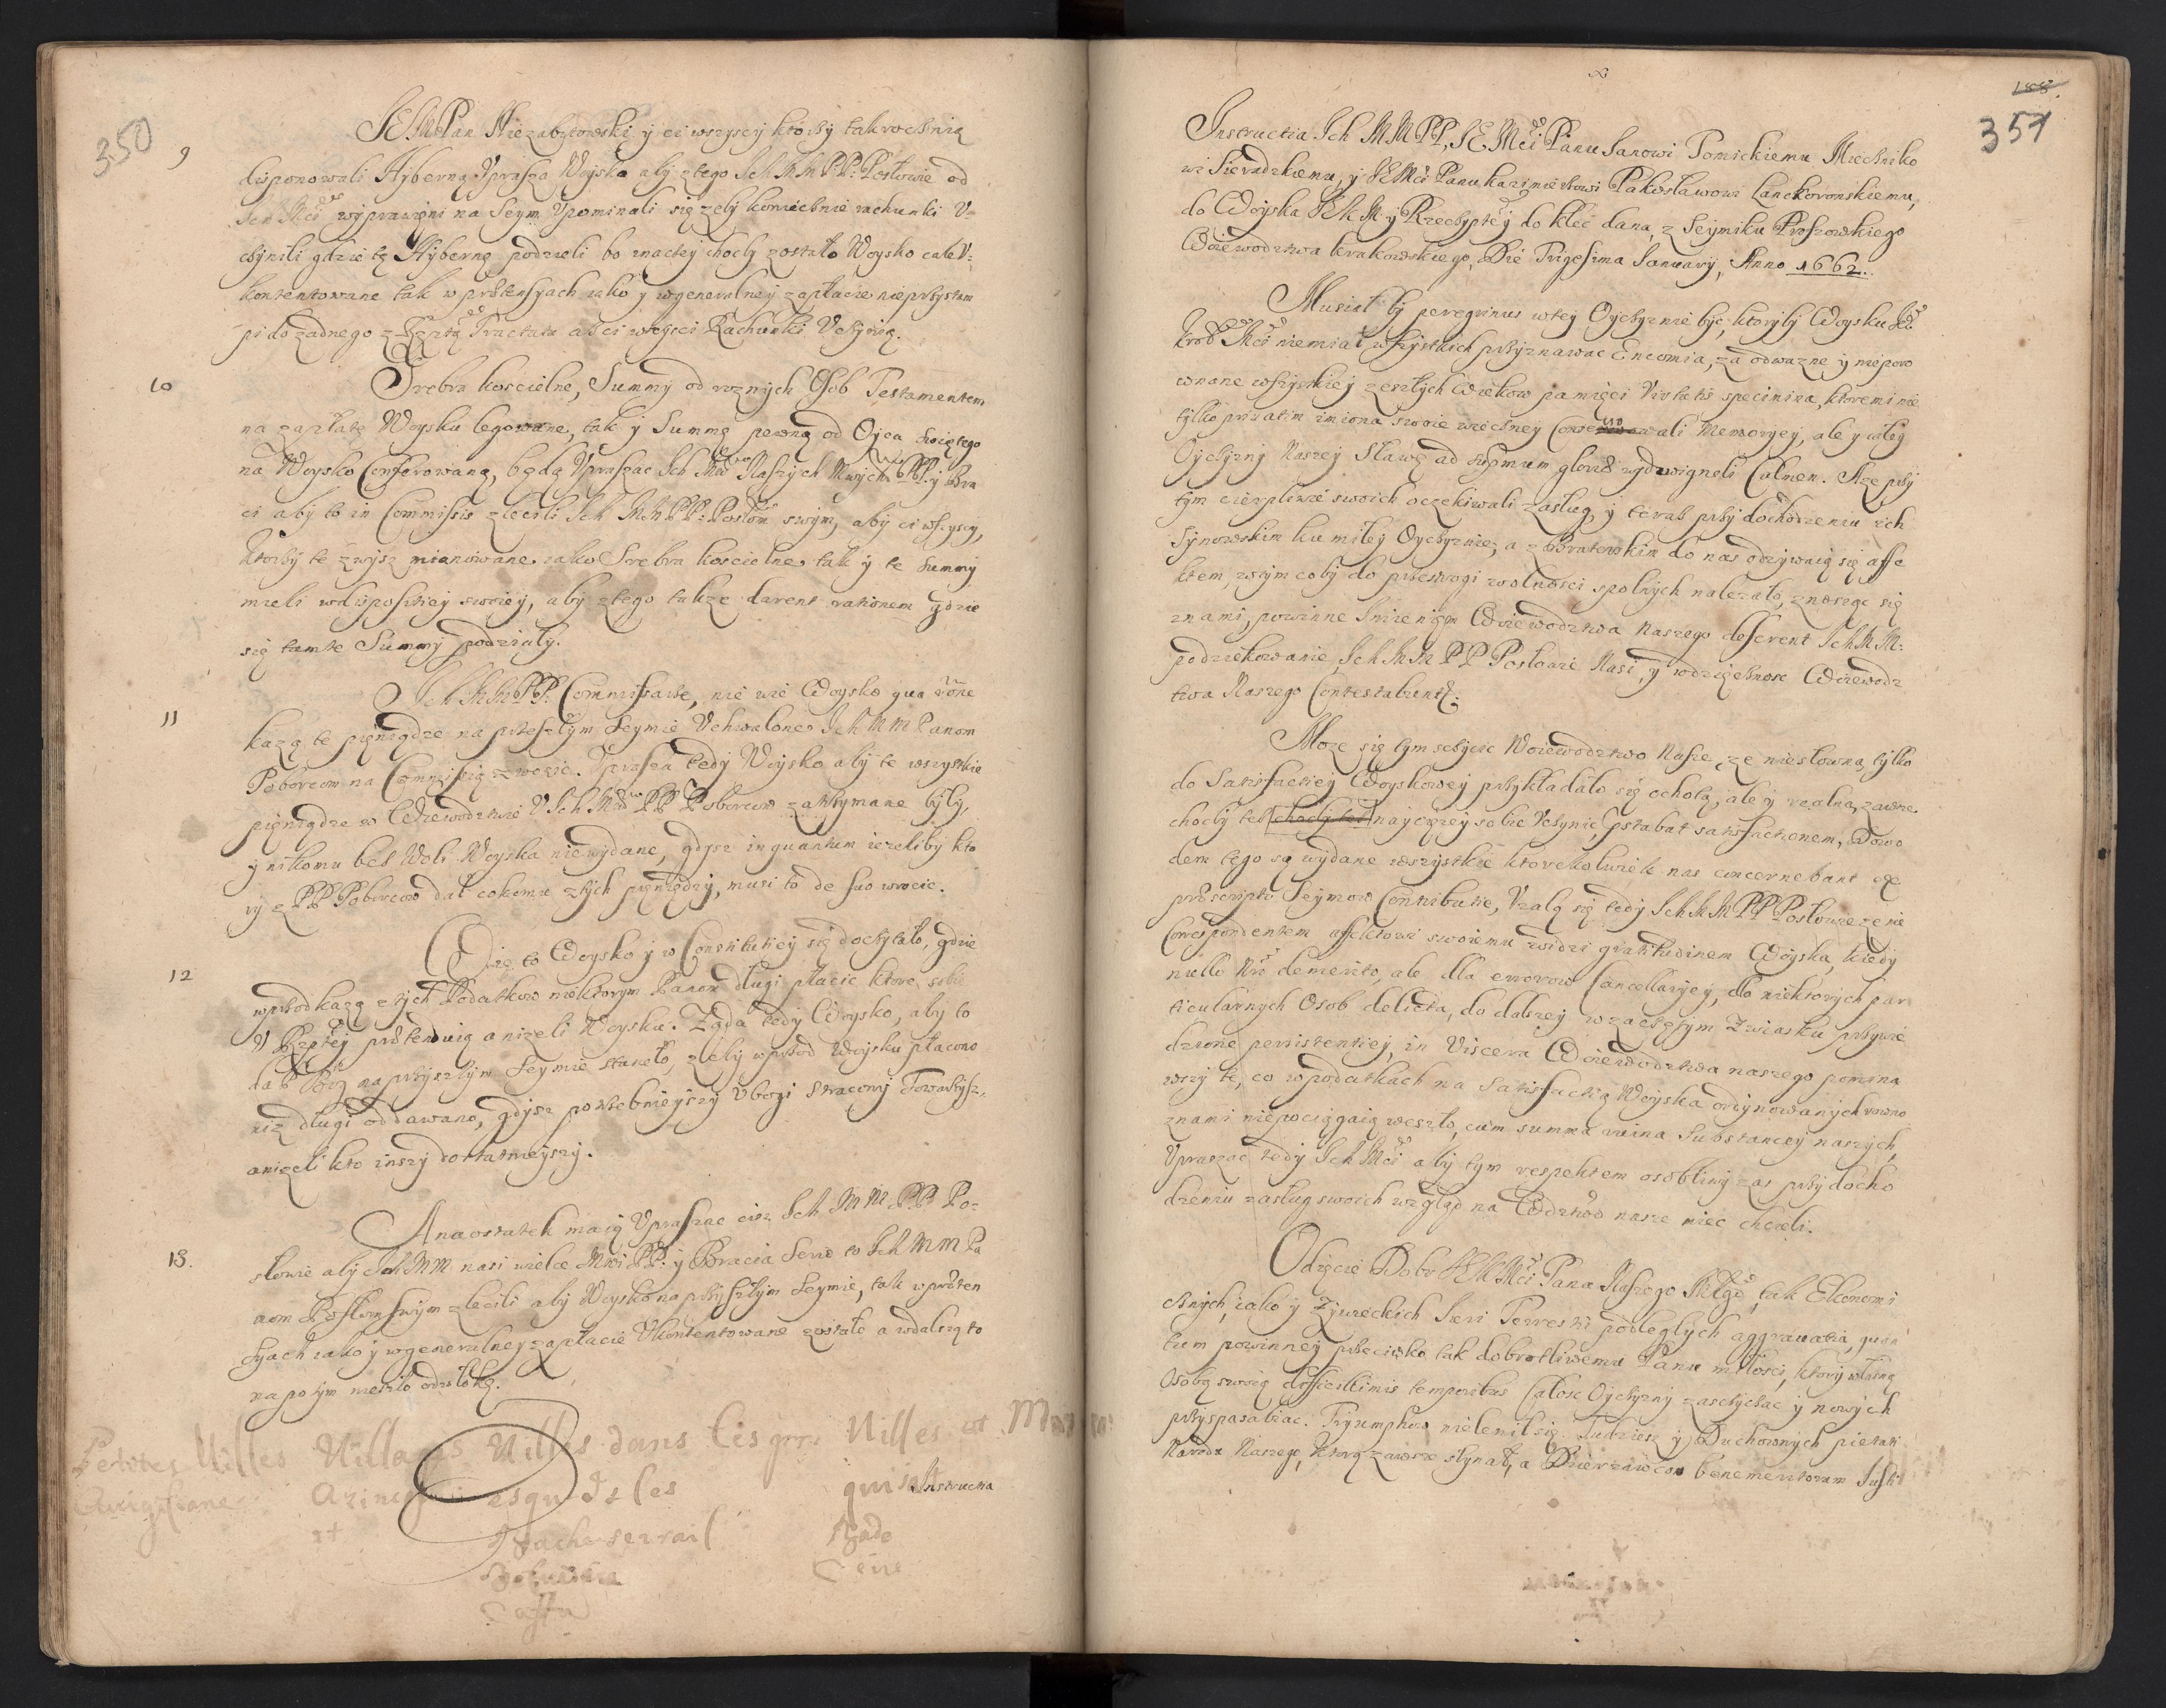 350
9
JEM Pan Niezabytowski y ci wszyscy ktorzy takroczną
disponowali Hyberną Vprasza Woysko aby z tego Ich MM PP: Posłowie od
Ich Mciów wyprawieni na Seym Vpominali się zeby koniecznie rachunki V=
czynili gdzie tę Hybernę podzieli bo inaczey choćby zostało Woysko całe V=
kontentowane tak w prætensyach iako y w generalney zapłacie nieprzystam
pi do zadnego z Rzptą Tractatu aż ci wszysci Rachunki Vczynią.
10
Srebra koscielne, Summy od roznych Osob Testamentem
na zapłatę Woysku legowane, tak y Summę pewną od Oyca Swiętego
na Woysko Conferowaną, będą Vpraszac Ich Mciów Naszych Mwych PP: y Bra
ci aby to in Commissis zlecili Ich MM PP: Posłom swym, aby ci wszyscy,
ktorzy te zwysz mianowane iako Srebra koscielne tak y te Summy
mieli w dispositiey swoiey, aby z tego takze darent rationem gdzie
się tamte Summy podziały.
11
Ich MM PP: Commissarze, nie wie Woysko qua rõne
kazą te pieniądze na przeszłym Seymie Vchwalone Ich MM Panom
Poborcom na Commissią zwozic. Vprasza tedy Woysko aby te wszystkie
pieniądze w Woiewodztwie V Ich Mciów PP Poborcow zatrzymane były,
y nikomu bez Woli Woyska niewydane, gdysz inquantum iezeliby kto
ry z PP Poborcow dał co komu z tych pieniędzy, musi to de suo wrocic.
12
Wie to Woysko y w Constitutiey się doczytało, gdzie
wprzod kazą z tych Podatkow niektorym Panom długi płacic ktore sobie
V Rzptey prætenduią a nizeli Woysku. Ząda tedy Woysko, aby to
da Bóg na przyszłym Seymie staneło, zeby wprzod Woysku płacono
niz długi oddawano, gdysz potrzebnieyszy Vbogi stracony Towarzysz,
anizeli kto inszy dostatnieyszy.
13.
A na ostatek maią Vpraszac cisz Ich MM PP Po=
słowie aby Ich MM nasi wielce Mwi PP: y Bracia serio to Ich MM Pa
nom Posłom swym zlecili aby Woysko na przyszłym Seymie, tak w præten
syach iako y w generalney zapłacie Vkontentowane zostało a w dalszą to
na potym nieszło odwłokę.
Instructia
357
Instructia Ich MM PP, JE Mci Panu Janowi Tomickiemu Mieczniko
wi Sieradzkiemu, y JE Mci Panu Kazimierzowi Pakosławowi Lanckoronskiemu,
do Woyska JK M y Rzeczyptey do Kielc dana, z Seymiku Proszowskiego
Woiewodztwa Krakowskiego, Die Trigesima January, Anno 1662.
Musiał by peregrinus w tey Oyczyznie byc, ktoryby Woysku JE
Krol Mci niemiał wszystkich przyznawac Encomia, za odwazne y nieporo
wnane wszystkiey zeszłych Wiekow pamięci Virtutis specimina, ktoremi nie
tylko privatim imiona swoie wieczney Conse wali Memoryey, ale y całey
Oyczyzny Naszey Sławę ad supmum gloriæ zgdwigneli Culmen. A ze przy
tym cierpliwie swoich oczekiwali zasług, y teraz przy dochodzeniu ich
Synowskim ku miłey Oyczyznie, a z Braterskim do nas odzywaią się affe
ktem, w tym coby do przestrogi wolnosci spolnych nalezało, znosząc się
z nami, powinne Imieniem Woiewodztwa Naszego deferent Ich MM:
podziekowanie, Ich MM PP Posłowie Nasi, y wdzięcznosc Woiewodz
twa Naszego Contestabuntr.
Moze się tym sczycic Woiewodztwo Nasze, ze niesłowną tylko
do Satisfactiey Woyskowey przykładało się ochotą, ale y realną, zawsze
choćby tez choćby tez naycięzey sobie Vczynic, pstabat satisfactionem, Dowo
dem tego są wydane wszystkie ktorekolwiek nas concernebant ex
præscripto Seymow Contributie, Vzalą się tedy Ich MM PP Posłowie ze nie
Correspondentem affektowi swoiemu widzi gratitudinem Woyska, kiedy
nullo Nro demerito, ale dla errorow Cancellaryey, dla niektorych par
ticularnych Osob delicta, do dalszey w zaczętym Związku przywie
dzione persistentiey, in Viscera Woiewodztwa naszego pomina
wszy te, co w podatkach na Satisfactią Woyska ordynowanych rowno
z nami niepociągaią weszło, cum summa ruina Substancey naszych,
Vpraszac tedy Ich Mciów aby tym respektem osobliwy zas przy docho
dzeniu zasług swoich wzgląd na Wdztwo nasze miec chcieli.
Odięcie Dobr JKMci Pana Naszego Miłgo, tak Ekonomi
cznych, iako y Zywieckich Iuri Terrestri podległych aggrauatia, quan
tum powinney przeciwko tak dobrotliwemu Panu miłosci, ktory własną
Osobą swoią difficillimis temporibus Całosc Oyczyzny zasczycac y nowych
przysparzac Tryumphow nielenił się. Tudziesz y Duchownych pietati
Narodu Naszego, ktorą zawsze słynął, a Dzierzawcow benemeritorum Justi